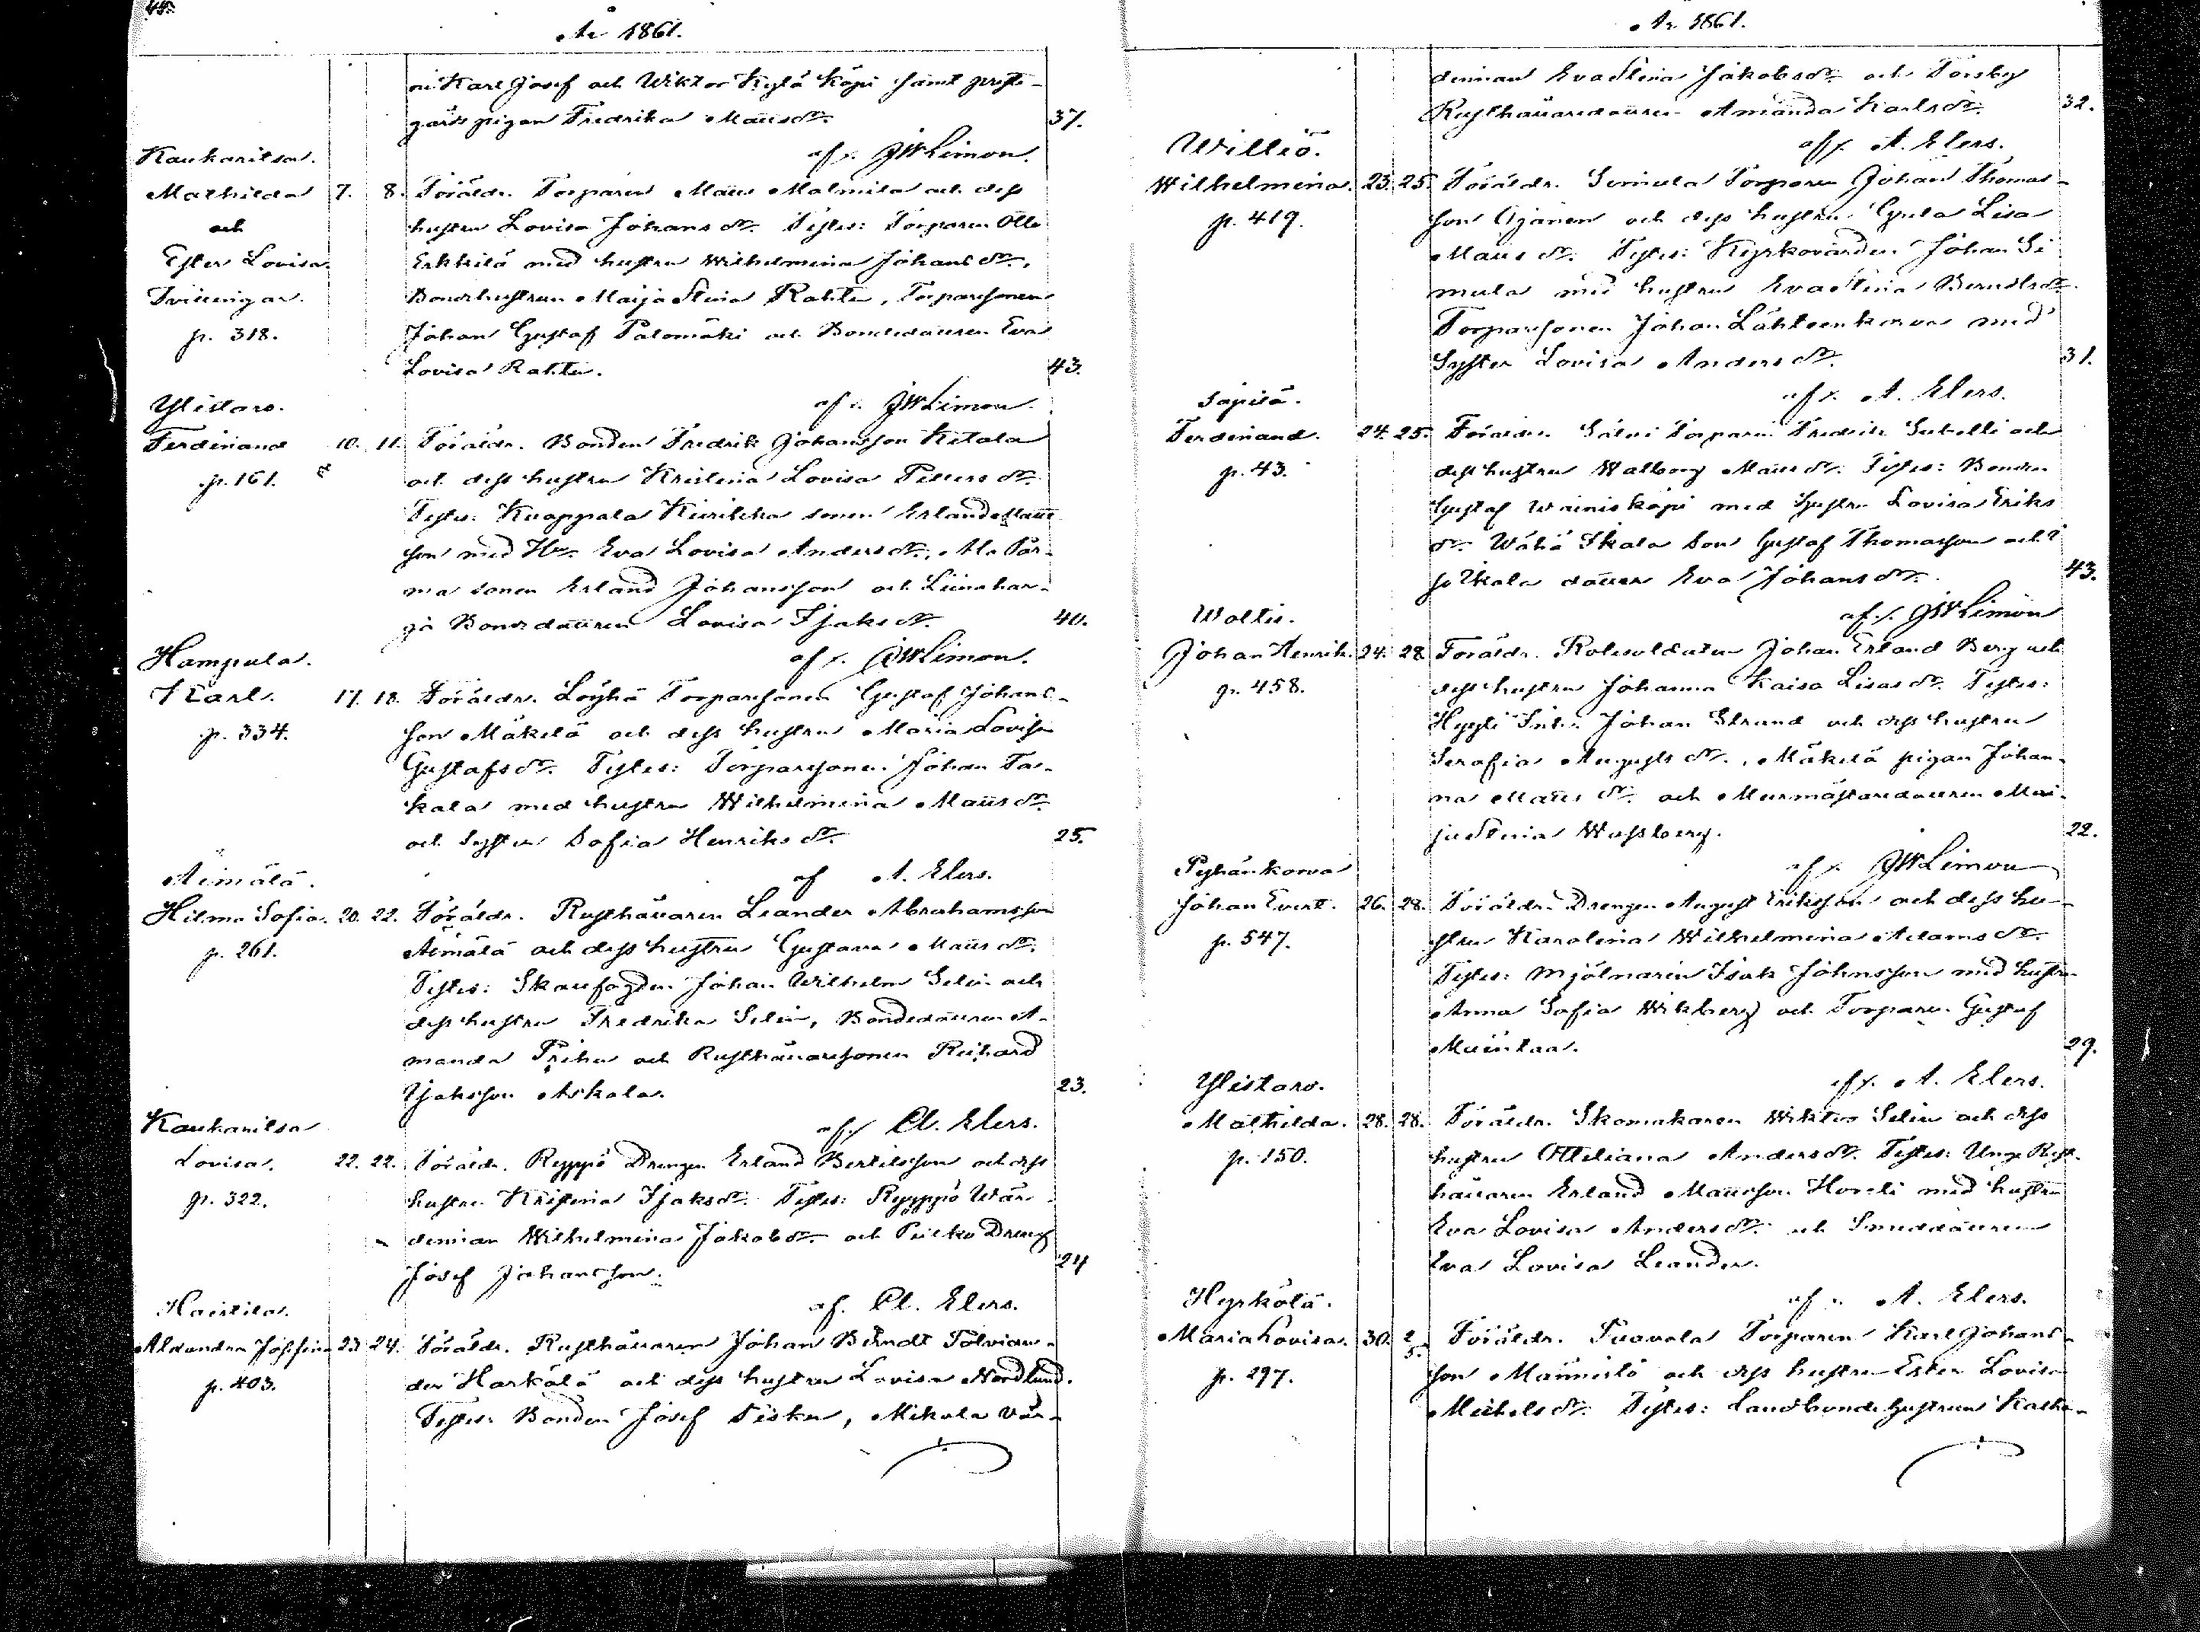 44.
År 1861.
ni Karl Josef och Wiktor Kylä Köpi samt prest-
gårds pigan Fredrika Mattsdr. 37.
af: JWLimon.
Kaukaritsa.
Mathilda 7. 8. Föräldr. Torparen Matts Malmila och dess
och hustru Lovisa Johansdr. Testes: Torparen Otto
Ester Lovisa Erkkilä med hustru Wilhelmina Johansdr.,
Tvillingar. Bondhustrun Maija Stina Rahtu, Torparesonen
p. 318. Johan Gustaf Palomäki och Bondedottren Eva
Lovisa Rahtu. 43.
af: JWLimon.
Ylistaro.
Ferdinand 10. 11. Föräldr. Bonden Fredrik Johansson Ketola
p. 161. och dess hustru Kristina Lovisa Pettersdr.
Testes: Knoppala sonen Erland Matts
son med Hu. Eva Lovisa Andersdr., Ala Pär-
ma sonen Erland Johansson och Liinahar-
ja Bondedottren Lovisa Isaksdr. 40.
af: JWLimon.
Hampula.
Karl. 17. 18. Föräldr. Löyhä Torparesonen Gustaf Johans-
p. 334. son Mäkelä och dess hustru Maria Lovisa
Gustafsdr. Testes: Torparesonen Johan Ta-
kala med hustru Wilhelmina Mattsdr.
och Syster Sofia Henriksdr. 25.
af A. Elers.
Äimälä.
Hilma Sofia. 20. 22. Föräldr. Rusthållaren Leander Abrahamsson
p. 261. Äimälä och dess hustru Gustava Mattsdr.
Testes: Skoufogden Johan Wilhelm Selin och
dess hustru Fredrika Selin, Bondedottren A-
manda Prihu och Rusthållaresonen Richard
Isaksson Askala. 23.
af: Cl. Elers.
Kaukaritsa
Lovisa. 22. 22. Föräldr. Reppö Drengen Erland Bertilsson och dess
p. 322. hustru Kristina Isaksdr. Testes: Reppö Wär-
dinnan Wilhelmina Jakobsdr. och Drengen
Josef Johansson. 24
af. Cl. Elers.
Haistila.
Alexandra Josefina 23 24. Föräldr. Rusthållaren Johan Berndt Tolvian-
p. 403. der Harkälä och dess hustru Lovisa Nordlund.
Testes: Bonden Josef Pisku, Mikola Vär-
År 1861.
dinnan Eva Stina Jakobsdr. och Torsby
Rusthållaredottren Amanda Karlsdr. 32.
af: A. Elers.
Williö.
Wilhelmina. 23. 25. Föräldr. Simula Torparen Johan Thomas-
p. 419. son Ojanen och dess hustru Greta Lisa
Mattsdr. Testes: Kyrkovärden Johan Si
mula med hustru Eva Stina Berndtsdr.
Torparesonen Johan Lähteenkorva med
Syster Lovisa Andersdr. 31.
af: A. Elers.
Säpilä.
Ferdinand. 24. 25. Föräldr. Torparen Fredrik och
p. 43. dess hustru Walborg Mattsdr. Testes: Bonden
Gustaf Wainisköpi med Hustru Lovisa Eriks
dr. Wähä Skala Son Gustaf Thomasson och I
so Skala dotter Eva Johansdr. 43.
af: JWLimon
Woltis.
Johan Henrik. 24. 28. Föräldr. Rotesoldaten Johan Erland Berg och
p. 458. dess hustru Johanna Kaisa Lisasdr. Testes:
Hyggi Inh. Johan Strand och dess hustru
Serafia Augustsdr., Mäkelä pigan Johan-
na Mattsdr. och Murmästaredottren Mai-
ja Stina Wassberg. 22.
af: JWLimon
Pyhänkorva
Johan Evert. 26. 28. Föräldr. Drengen August Eriksson och dess hu-
p. 547. stru Karolina Wilhelmina Adamsdr.
Testes: Mjölnaren Isak Johnsson med hustru
Anna Sofia Wikberg och Torparen Gustaf
29.
af: A. Elers.
Ylistaro.
Mathilda. 28. 28. Föräldr. Skomakaren Wiktor Selin och dess
p. 150. hustru Ottiliana Andersdr. Testes: Unge Rust-
hållaren Erland Mattsson Honsli med hustru
Eva Lovisa Andersdr. och Smeddottren
Eva Lovisa Leander.
af: A. Elers.
Hyrkölä.
Maria Lovisa. 30. 2/5. Föräldr. Puovola Torparen Karl Johans-
p. 297. son Männistö och dess hustru Ester Lovisa
Michelsdr. Testes: Landbondehustrun Kasku-